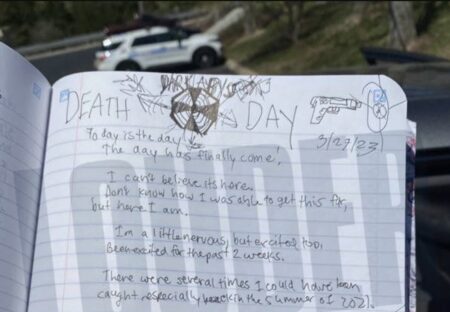 DARK ABYSS
DEATH DAY
3/27/23
Today is the day
The day has finally come!
I can't believe its here.
Dont know how I was able to get this far,
but here I am.
I'm a little nervous, but excited too.
Been excited for the past 2 weeks.
There were several times I could have been
caught, especially back in the summer of 2021.